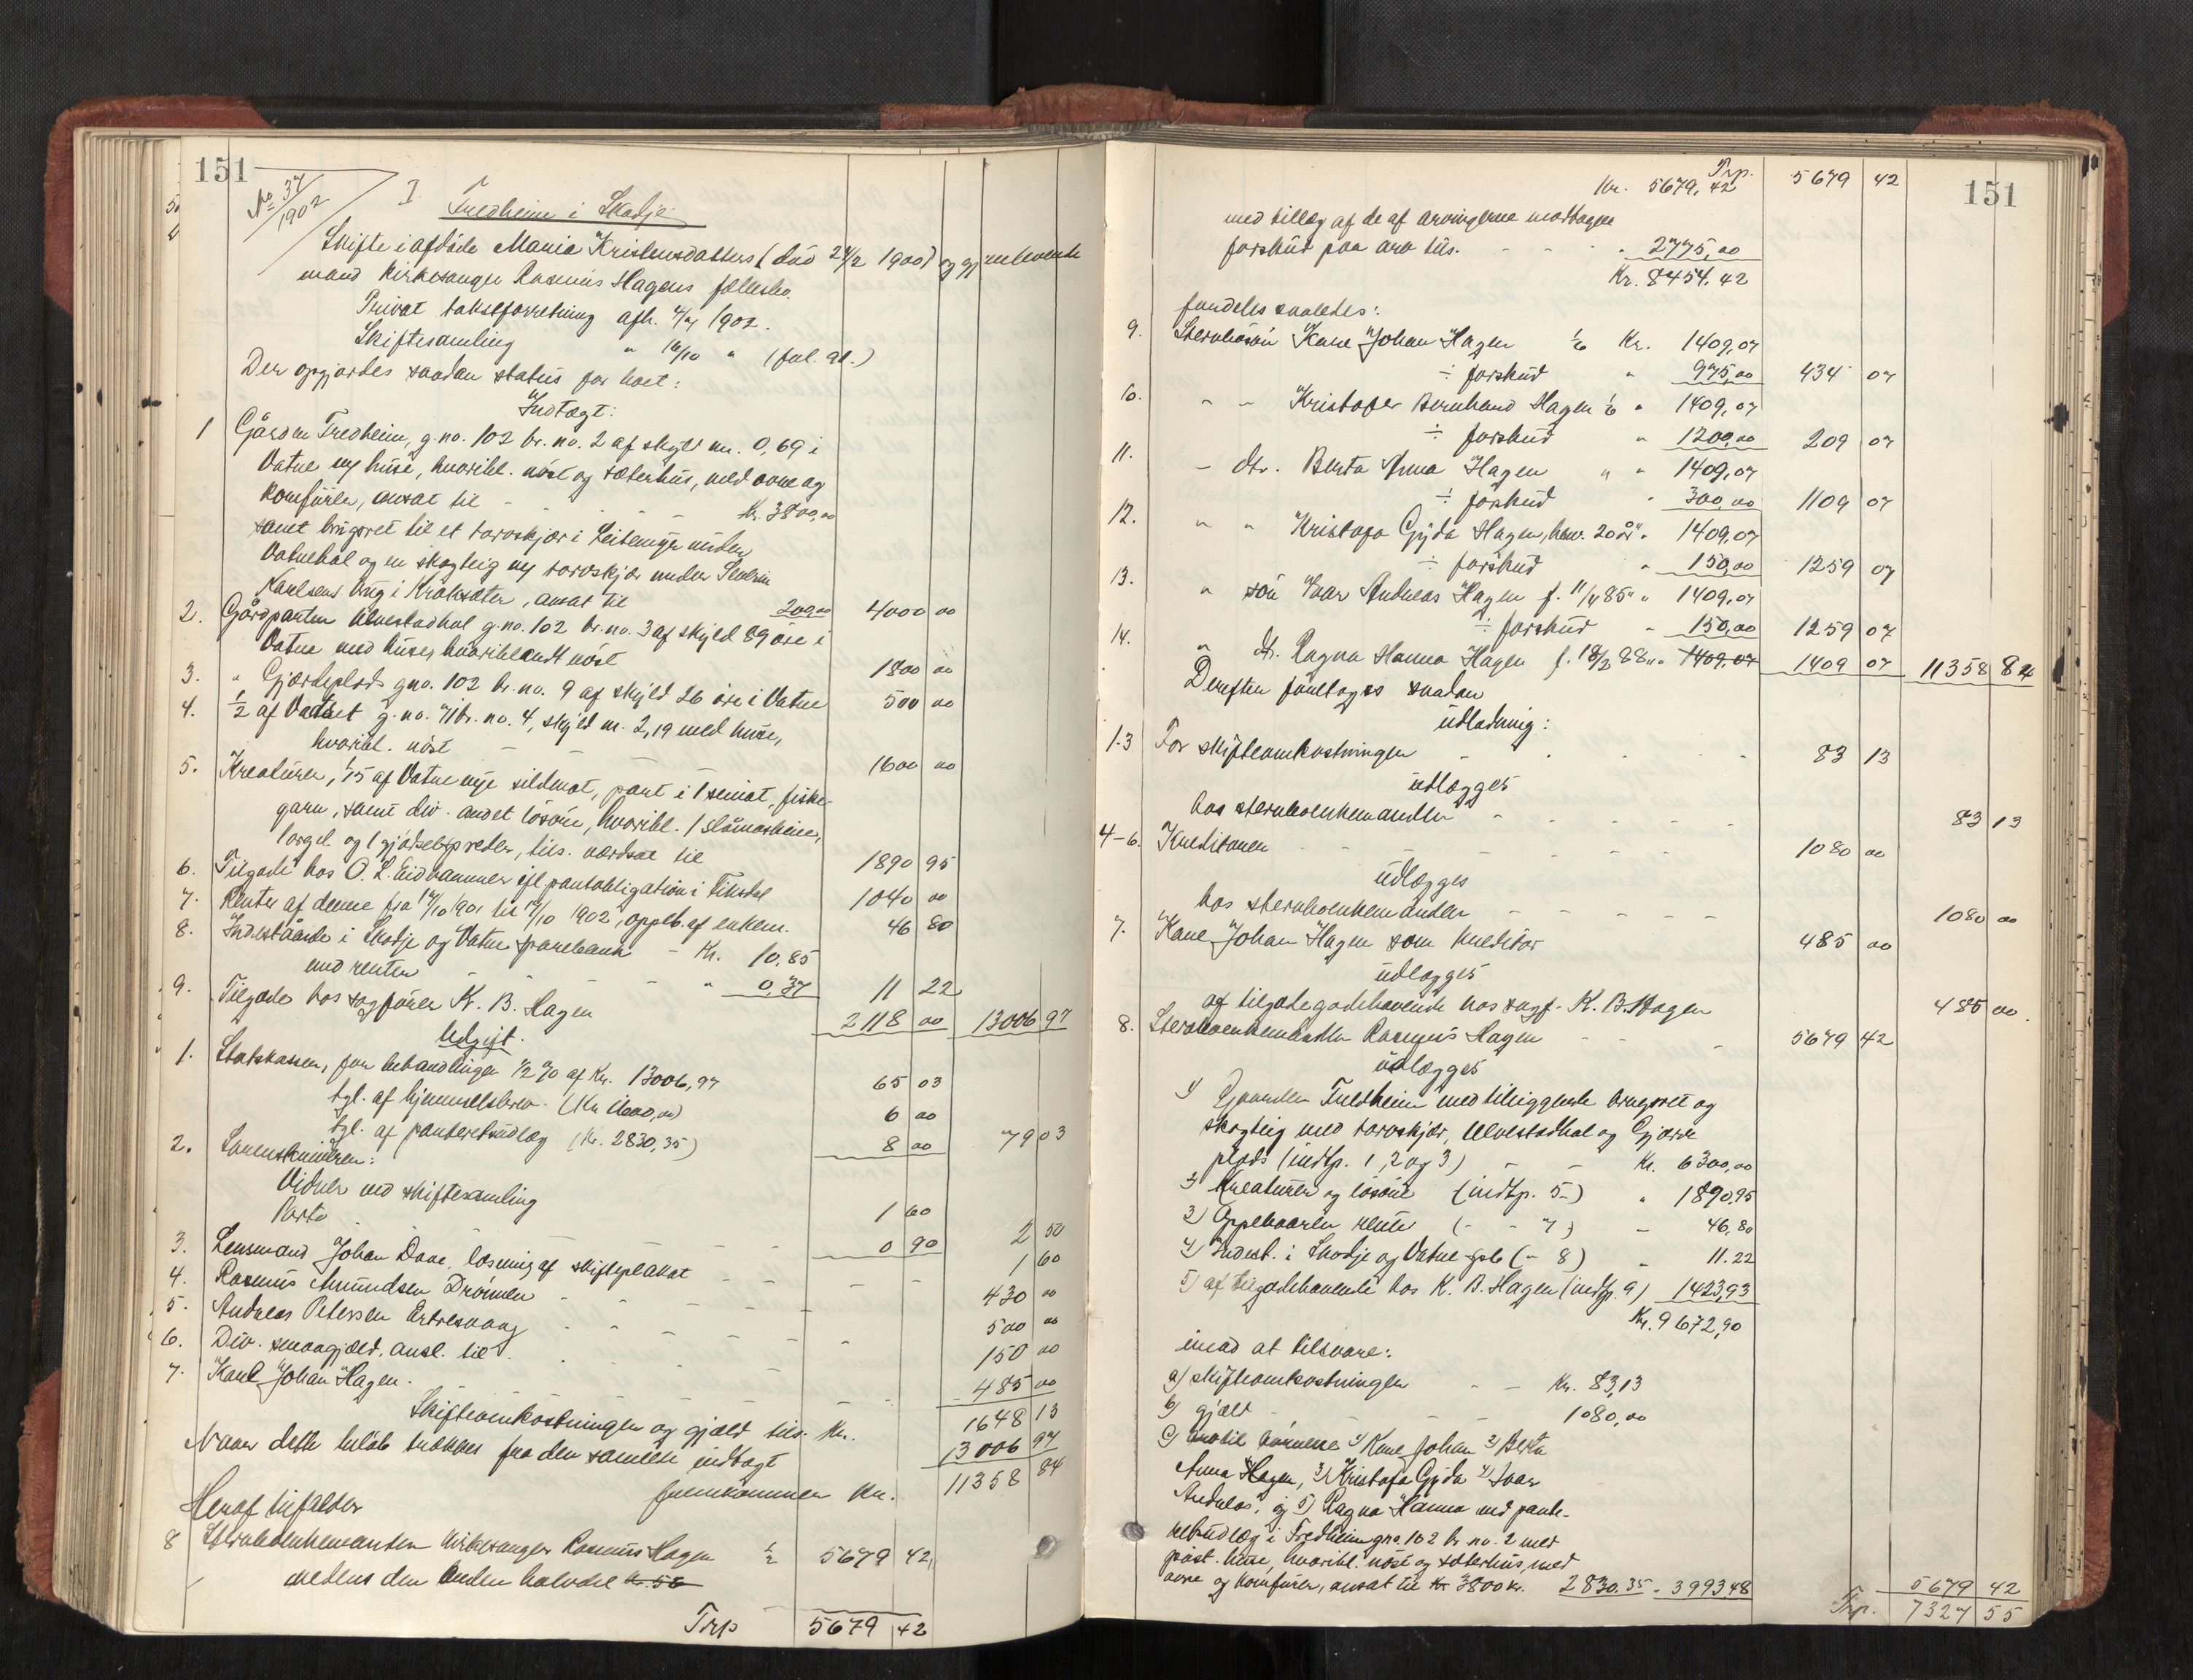 151
No 37/1902
I
Fredheim i Skodje
Skifte i afdöde Maria Kristensdatters (död 24/2 1900) og gjenlevende
mand kirkesanger Rasmus Hagens fællesbo.
Privat takstforretning afh. 4/4 1902.
Skiftesamling " 16/10 " (fol. 91.)
Der opgjordes saadan status for boet:
Indtægt:
1 Gården Fredheim, g.no. 102 br. no. 2 af skyld m. 0,69 i
Vatne m/ huse, hvoribl. nöst og sæterhus, med ovne og
komfürer, ansat til - - - - kr. 3800,00
samt brugsret til et torvskjær i Leitemyr under
Vatnehol og en skogteig m/ torvskjær under Severin
Karlsens brug i Kroksæter, ansat til 200,00 4000 00
2. Gårdparten Ulvestadhol g.no. 102 br. no. 3 af skyld 89 öre i
Vatne med huser hvoriblandt nöst 1800 00
3. " Gjærdeplads gno. 102 br. no. 9 af skyld 26 öre i Vatne 500 00
4. 1/2 af Vadset g. no. 71 br. no. 4, skyld m. 2,19 med huse,
hvoribl. nöst - - - 1600 00
5. Kreaturer, 1/15 af Vatne nye sildnot, part i 1 seinot, fiske-
garn, samt div. andet lösöre, hvoribl. 1 slåmaskine,
1 orgel og 1 gjödselspreder, tils. værdsat til 1890 95
6. Tilgode hos O. L. Eidhammer ifl pantobligation i Fiksdal 1040 00
7. Renter af denne fra 14/10 1901 til 14/10 1902, oppeb. af enkem. 46 80
8. Indestående i Skodje og Vatne sparebank - Kr. 10,85
med renter - - - - " 0,37 11 22
9. Tilgode hos sagförer K. B. Hagen 2118 00 13006 97
Udgift.
1. Statskassen, for behandlingen 1/2 % af Kr. 13006,97 65 03
tgl. af hjemmelsbrev (Kr 1600,00) 6 00
tgl. af panteretsudlæg (Kr. 2830,35) 8 00 79 03
2. Sorenskriveren:
Vidner ved skiftesamling 1 60
Porto - - - 0 90 2 50
3. Lensmand Johan Daae, læsning af skifteplakat - - 1 60
4. Rasmus Amundsen Drönnen - - - 430 00
5. Andreas Petersen Ertresvaag - - - 500 00
6. Div. smaagjæld, ansl. til - - - 150 00
7. Karl Johan Hagen. - - - 485 00
Skifteomkostninger og gjæld tils. Kr. 1648 13
Naar dette belöb trækkes fra den samlede indtægt 13006 97
fremkommer Kr. 11358 84
Heraf tilfalder
8 Stervboenkemanden kirkesanger Rasmus Hagen 1/2 5679 42
medens den anden halvdel kr. 56
Trp 5679 42
151
Trp. 5679 42
Kr. 5679,42
med tillæg af de af arvingerne modtagne
forskud paa arv tils. - - - " 2775,00
Kr. 8454,42
fordeles saaledes:
9. Stervbosön Karl Johan Hagen 1/6 Kr. 1409,07
÷ forskud " 975,00 434 07
10. - - Kristofer Bernhard Hagen 1/6 " 1409,07
÷ forskud " 1200,00 209 07
11. - dtr. Berta Anna Hagen " " 1409,07
÷ forskud " 300,00 1109 07
12. " " Kristofa Gyda Hagen, henv. 20 år " 1409,07
÷ forskud " 150,00 1259 07
13. " sön Ivar Andreas Hagen f. 11/4 85 " " 1409,07
÷ forskud " 150,00 1259 07
14. " dtr. Ragna Hanna Hagen f. 18/3 88 " " 1409,07 1409 07 11358 84
Derefter foretoges saadan
udlodning:
1-3 For skifteomkostninger - - - 83 13
udlægges
hos stervboenkemanden - - - 83 13
4-6. Kreditorer - - - 1080 00
udlægges
hos stervboenkemanden - - - 1080 00
7. Karl Johan Hagen som kreditor 485 00
udlægges
af tilgodehavende hos sagf. K. B. Hagen 485 00
8. Stervboenkemanden Rasmus Hagen - - 5679 42
udlægges
1) Gaarden Fredheim med tilliggende brugsret og
skogteig med torvskjær, Ulvestadhol og Gjærde
plads (indtp. 1, 2 og 3) - - Kr. 6300,00
2) Kreaturer og lösöre (indtp. 5) " 1890,95
3) Oppebaarne rente ( - - 7) - 46,80
4) Indest. i Skodje og Vatne spb (- 8) " 11.22
5) af tilgodehavende hos K. B. Hagen (indtp. 9) 1423,93
Kr. 9672,90
imod at tilsvare:
a) skifteomkostninger - - Kr. 83,13
b) gjæld - - - 1080,00
c) arv til börnene 1) Karl Johan 2) Berta
Anna Hagen, 3) Kristofa Gyda 4) Ivar
Andreas, og 5) Ragna Hanna med pante-
retsudlæg i Fredheim gno. 102 br. no. 2 med
påst. huse, hvoribl. nöst og sæterhus, med
ovne og komfürer, ansat til kr 3800 kr. 2830.35 - 3993,48
5679 42
Trp. 7327 55